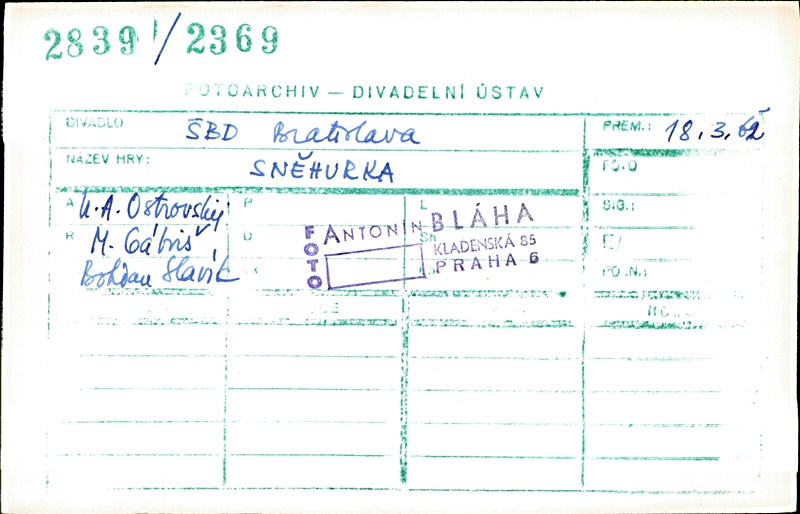 2839/2369
FOTOARCHIV — DIVADELNÍ ÚSTAV
DIVADLO ŠBD Bratislava
PREM.: 18.3.62
NÁZEV HRY: SNĚHURKA
FOTO
A A. Ostrovskij
P
L
SIG.:
R M. Gábriš,
D
Sh
E/
Bohdan Slavík
K
PO.N.:
FOTO ANTONÍN BLÁHA
KLADENSKÁ 85
PRAHA 6